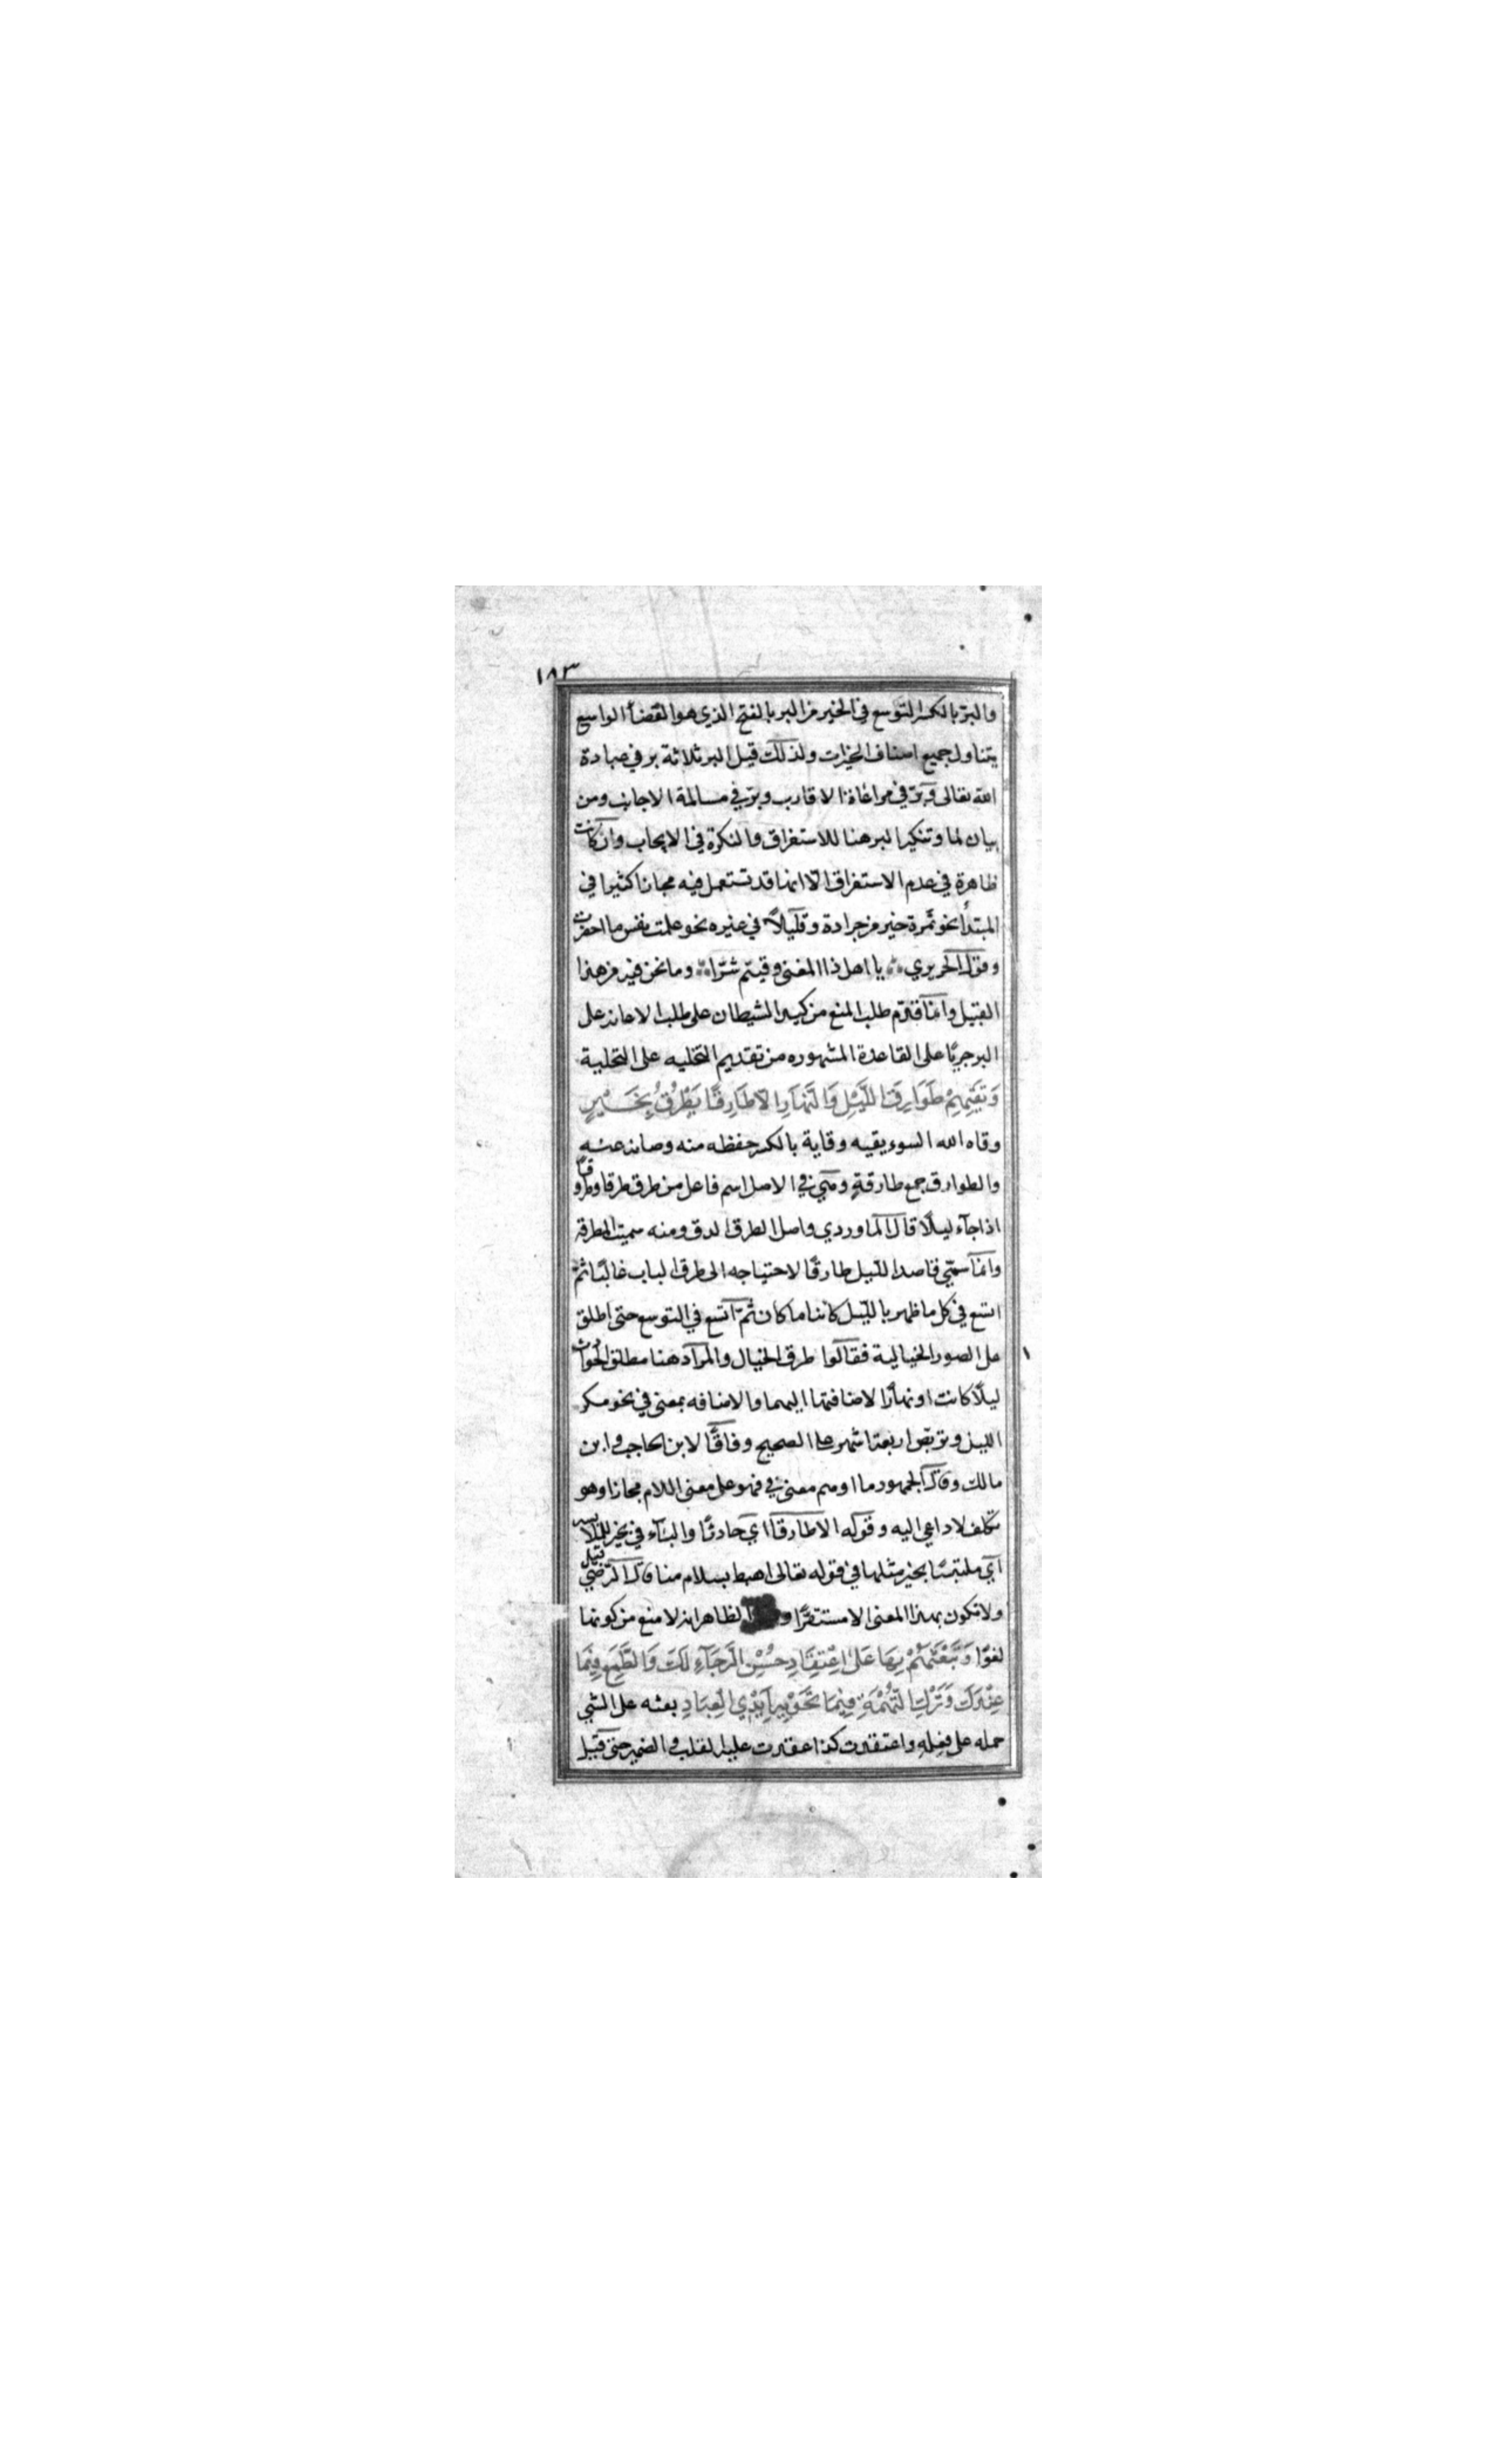 ١٨٣
والبرّ بالكسر التوسع في الخير من البر بالفتح الذي هو الفضاء الواسع
يتناول جميع اصناف الخيرات ولذلك قيل البر ثلاثة بر في عبادة
الله تعالى وبرّ في مراعاة الاقارب وبرّ في مسالمة الاجانب ومن
بيان لما وتنكير البر هنا للاستغراق والنكرة في الايجاب وان كانت
ظاهرة في عدم الاستغراق الّا انها قد تستعمل فيه مجازا كثيرا في
المبتدأ نحو تمرة خير من جرادة وقليلاً في غيره نحو علمت نفس ما احضرت
وقول الحريري يا اهل ذا المغنى وقيتم شرّا وما نحن فيه من هذا
القبيل وانما قدّم طلب المنع من كيد الشيطان على طلب الاعانه على
البر جريًا على القاعدة المشهوره من تقديم التخليه على التحلية
وَتَقِيَهُمْ طَوَارِقَ اللَّيْلِ وَالنَّهَارِ الّا طَارِقًا يَطْرُقُ بِخَيْرٍ
وقاه الله السوء يقيه وقاية بالكسر حفظه منه وصانه عنه
والطوارق جمع طارقةٍ وهي في الاصل اسم فاعل من طرق طرقا وطروقًا
اذا جآء ليلًا قال الماوردي واصل الطرق الدق ومنه سميت المطرقه
وانما سمّي قاصد الليل طارقًا لاحتياجه الى طرق الباب غالبًا ثمّ
اتسع في كل ما ظهر بالليل كائنا ما كان ثمّ اتسع في التوسع حتى اطلق
على الصور الخيالية فقالوا طرق الخيال والمراد هنا مطلق الحوادث
ليلًا كانت او نهارًا لاضافتها اليهما والاضافه بمعنى في نحو مكر
الليل وتربّص اربعة اشهر على الصحيح وفاقًا لابن الحاجب وابن
مالك وقال الجمهور ما اوهم معنى في فهو على معنى اللام مجازا وهو
تكلف لا داعي اليه وقوله الا طارقا اي حادثًا والباء في بخير للملابسه
اي ملتبسًا بخير مثلها في قوله تعالى اهبط بسلام منا قال الرّضي قيل
ولا تكون بهذا المعنى الا مستقرًّا والظاهر انه لا منع من كونها
لغوًا وَتَبْعَثَهُمْ بِهَا عَلَى اعْتِقَادِ حُسْنِ الرَّجَآءِ لَكَ وَالطَّمَعِ فِيْمَا
عِنْدَكَ وَتَرْكِ التُّهْمَةِ فِيْمَا تَحْوِيهِ اَيْدِي الْعِبَادِ بعثه على الشي
حمله على فعله واعتقدت كذا عقدت عليه القلب والضمير حتى قيل